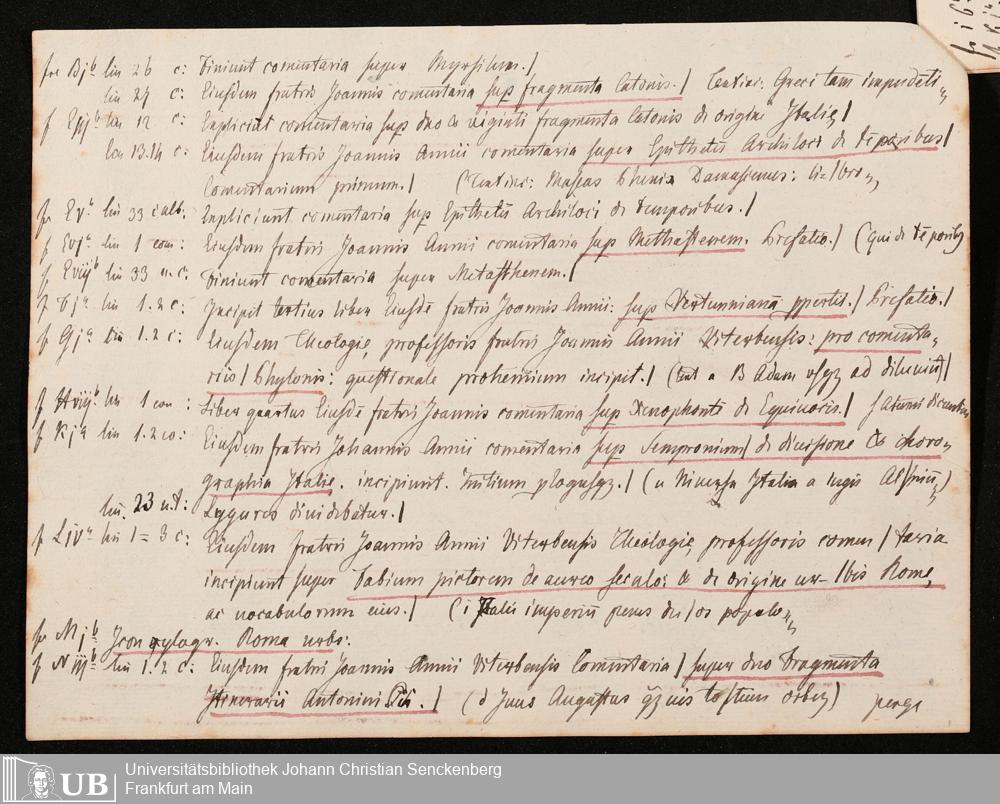 fr Bjb lin 26 c: Finiunt comentaria super Myrsilum./
lin 27 c: Eiusdem fratris Joannis comentaria sup fragmenta Catonis./ Textinc: Greci tam impudeti
f lin 12 c: Expliciūt comentaria sup duo & viginti fragmenta Catonis de origine Italie/
lin 13.14 c: Eiusdem fratris Joannis Annii comentaria super Epithetū Archiloci de tēporibus/
Comentarium primum./ (Textinc: Massas Phenix Damascenus: li=/bro
fr Evb lin 33 c alt: Expliciunt comentaria sup Epithetū Archiloci de temporibus./
f Evja lin 1 com: Eiusdem fratris Joannis Annii comentaria sup Methastenem. Prefatio./ (Qui de tēporibꝫ
f Eviijb lin 33 c: Finiunt comentaria super Metasthenem./
f Fja lin 1.2 c: Incipit tertius liber Eiusdē fratris Joannis Annii: sup Vertunnianā ppertii./ Prefatio./
f Gja lin 1.2 c: Eiusdem Theologie, professoris fratris Joannis Annii Viterbensis: pro comenta
riis/ Phylonis: questionale prohemium incipit./ (text a B Adam vsqꝫ ad diluuiū/
f Hviijb lin 1 con: Liber quartus Eiusdē fratris Joannis comentaria sup Xenophonti de Equiuocis./ Saturni dicuntur
f Kja lin 1.2 co: Eiusdem fratris Johannis Annii comentaria sup Sempronium/ de diuisione & choro
graphia Italie. incipiunt. Initium (u Niuersa Italia a iugis
lin. 23 u.t: Lygures diuidebatur./
f Ljva lin 1=3 c: Eiusdem fratris Joannis Annii Viterbensis Theologie, professoris comen/taria
incipiunt super Fabium pictorem de aureo seculo: & de origine ur=/bis Rome,
ac vocabulorum eius./ (i Italie imperiū penes du/os populo
fr Mjb Icon xylogr. Roma urbs:
f Niijb lin 1.2 c: Eiusdem fratris Joannis Annii Viterbensis Comentaria/ super duo Fragmenta
Itinerarii Antonini Pii./ (d Juus Augustus qꝫuis totum orbeꝫ) perge
Universitätsbibliothek Johann Christian Senckenberg
Frankfurt am Main
UB